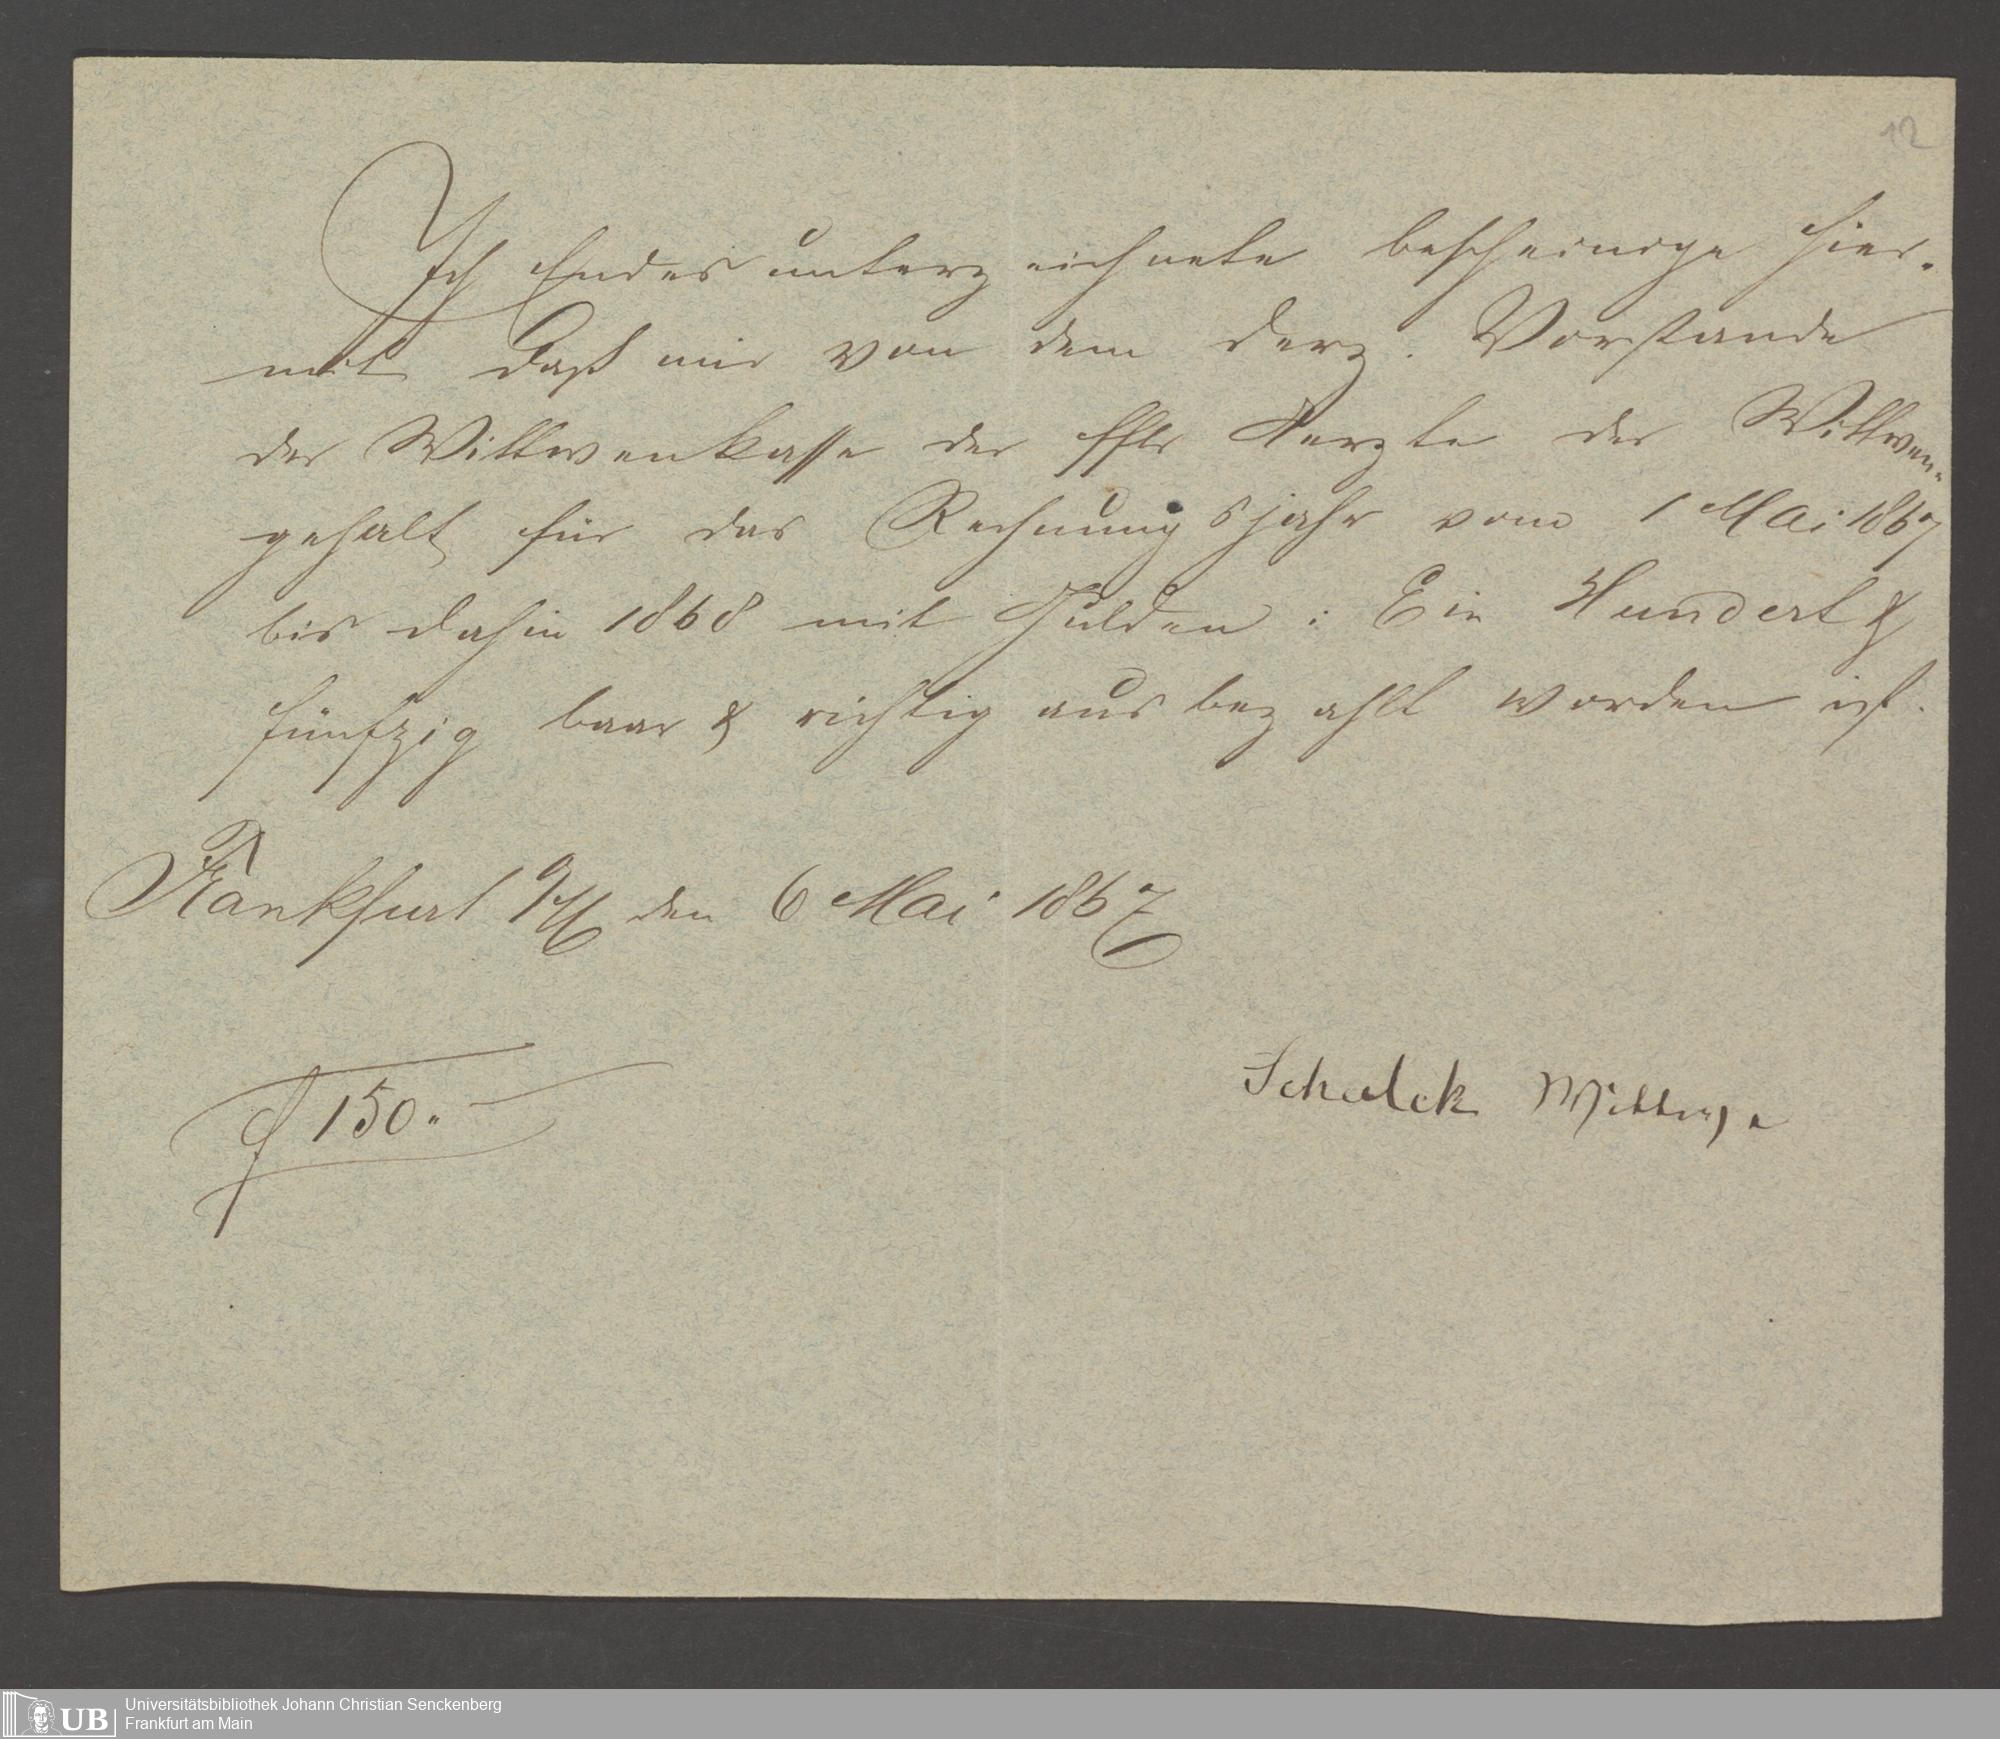 12
Ich Endes unterzeichnete bescheinige hier-
mit daß mir von dem derz. Vorstande
der Wittwenkasse der hies Aerzte der Wittwen-
gehalt für das Rechnungsjahr vom 1 Mai 1867
bis dahin 1868 mit Gulden : Ein Hundert &
fünfzig baar & richtig ausbezahlt worden ist.
Frankfurt a/M den 6 Mai 1867
f 150.. —
Schalck Wittwe
UB
Universitätsbibliothek Johann Christian Senckenberg
Frankfurt am Main